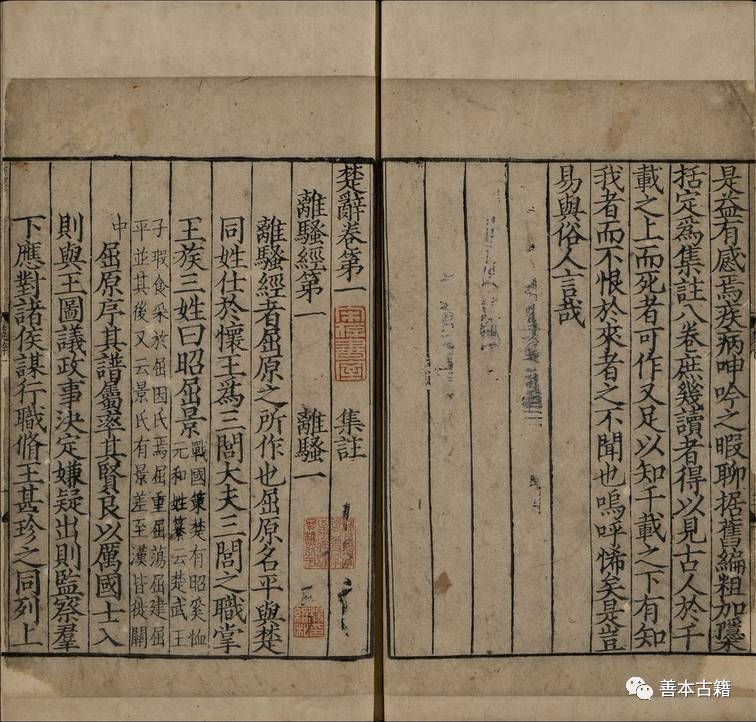 是益有感焉疾病呻吟之暇聊据舊編粗加隱
括定為集註八卷庶幾讀者得以見古人於千
載之上而死者可作又足以知千載之下有知
我者而不恨於來者之不聞也嗚呼悕矣是豈
易與俗人言哉
楚辭卷第一 集註
離騷經第一 離騷一
離騷經者屈原之所作也屈原名平與楚
同姓仕於懷王為三閭大夫三閭之職掌
王族三姓曰昭屈景戰國策楚有昭奚恤
元和姓纂云楚武王
子瑕食采於屈因氏焉屈重屈蕩屈建屈
平並其後又云景氏有景差至漢皆徙關
中屈原序其譜屬率其賢良以厲國士入
則與王圖議政事決定嫌疑出則監察羣
下應對諸侯謀行職脩王甚珍之同列上
善本古籍